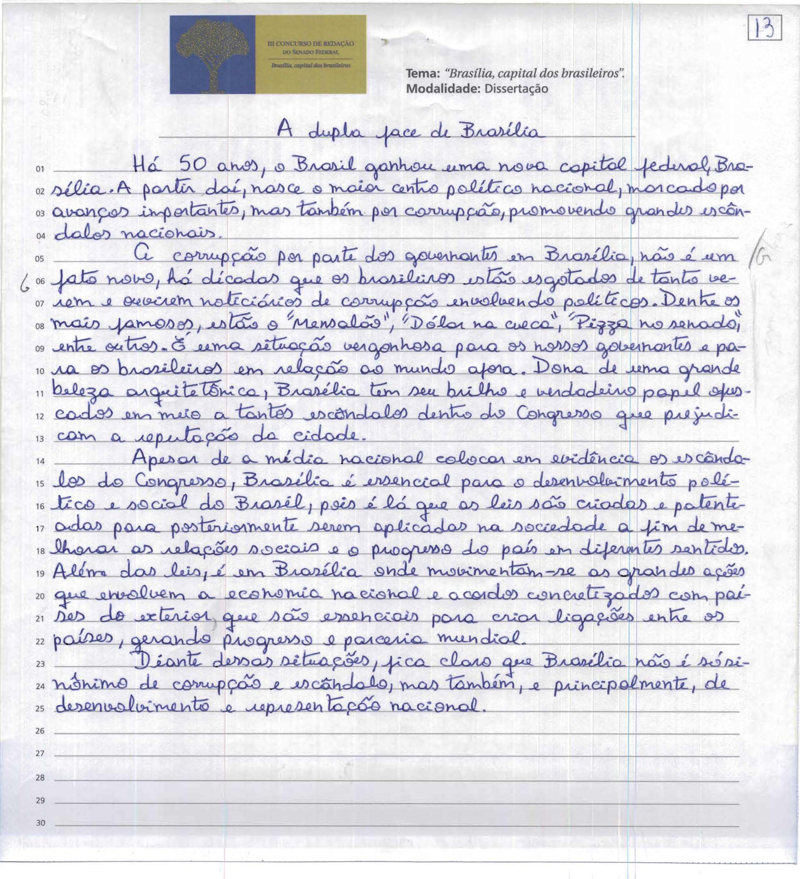 13
III CONCURSO DE REDAÇÃO
DO SENADO FEDERAL
Brasília, capital dos brasileiros
Tema: "Brasília, capital dos brasileiros".
Modalidade: Dissertação
A dupla face de Brasília
01 Há 50 anos, o Brasil ganhou uma nova capital federal, Bra-
02 sília. A partir daí, nasce o maior centro político nacional, marcado por
03 avanços importantes, mas também por corrupção, promovendo grandes escân-
04 dalos nacionais.
05 A corrupção por parte dos governantes em Brasília, não é um
06 fato novo, há décadas que os brasileiros estão esgotados de tanto ve-
07 rem e ouvirem noticiários de corrupção envolvendo políticos. Dentre os
08 mais famosos, estão o "Mensalão", "Dólar na cueca", "Pizza no senado",
09 entre outros. É uma situação vergonhosa para os nossos governantes e pa-
10 ra os brasileiros em relação ao mundo afora. Dona de uma grande
11 beleza arquitetônica, Brasília tem seu brilho e verdadeiro papel ofus-
12 cados em meio a tantos escândalos dentro do Congresso que prejudi-
13 cam a reputação da cidade.
14 Apesar de a média nacional colocar em evidência os escânda-
15 los do Congresso, Brasília é essencial para o desenvolvimento polí-
16 tico e social do Brasil, pois é lá que as leis são criadas e patente-
17 adas para posteriormente serem aplicadas na sociedade a fim de me-
18 lhorar as relações sociais e o progresso do país em diferentes sentidos.
19 Além das leis, é em Brasília onde movimentam-se as grandes ações
20 que envolvem a economia nacional e acordos concretizados com paí-
21 ses do exterior, que são essenciais para criar ligações entre os
22 países, gerando progresso e parceria mundial.
23 Diante dessas situações, fica claro que Brasília não é só si-
24 nônimo de corrupção e escândalo, mas também, e principalmente, de
25 desenvolvimento e representação nacional.
26
27
28
29
30